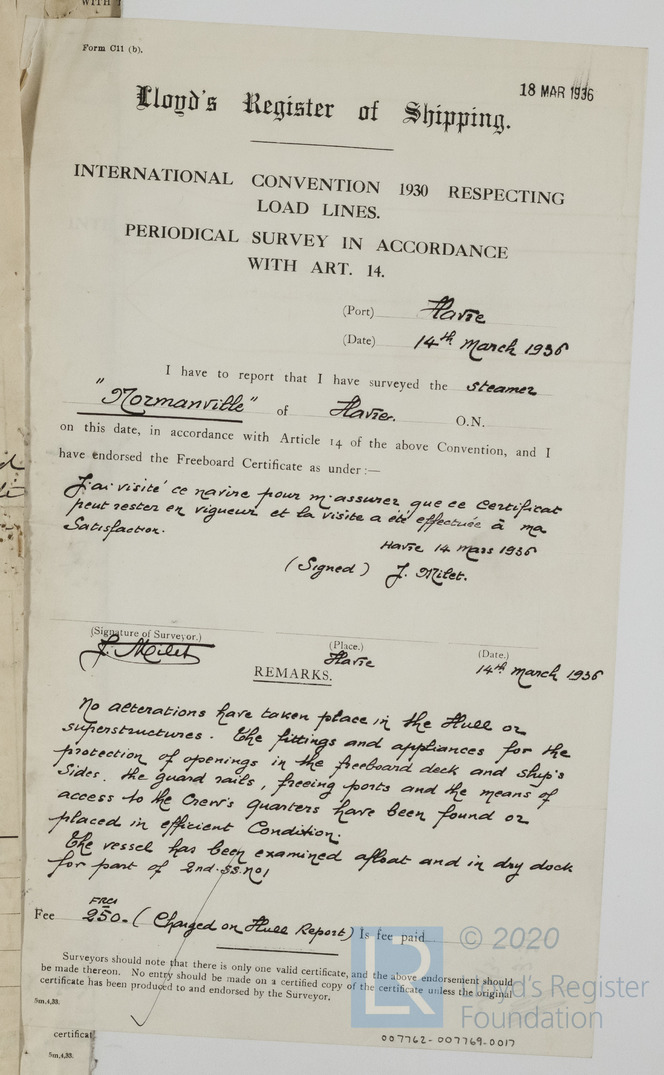 WITH
Form C11 (b).
18 MAR 1936
Lloyd's Register of Shipping.
INTERNATIONAL CONVENTION 1930 RESPECTING
LOAD LINES.
PERIODICAL SURVEY IN ACCORDANCE
WITH ART. 14.
(Port) Havre
(Date) 14th March 1936
I have to report that I have surveyed the steamer
"Normanville" of Havre. O.N.
on this date, in accordance with Article 14 of the above Convention, and I
have endorsed the Freeboard Certificate as under:—
J'ai visité ce navire pour m'assurer que ce Certificat
peut rester en vigueur et la visite a été effectuée à ma
Satisfaction.
Havre 14 Mars 1936
(Signed) J. Milet.
(Signature of Surveyor.) (Place.) (Date.)
J. Milet Havre 14th March 1936
REMARKS.
No alterations have taken place in the Hull or
superstructures. The fittings and appliances for the
protection of openings in the freeboard deck and ship's
Sides, the guard rails, freeing ports and the means of
access to the Crew's quarters have been found or
placed in efficient Condition.
The vessel has been examined afloat and in dry dock
for part of 2nd. SS. No1
FRCS
Fee 250.- (Charged on Hull Report) Is fee paid
Surveyors should note that there is only one valid certificate, and the above endorsement should
be made thereon. No entry should be made on a certified copy of the certificate unless the original
certificate has been produced to and endorsed by the Surveyor.
5m,4,33.
certificat
5m,4,33.
© 2020
LR
Lloyd's Register
Foundation
007762-007769-0017